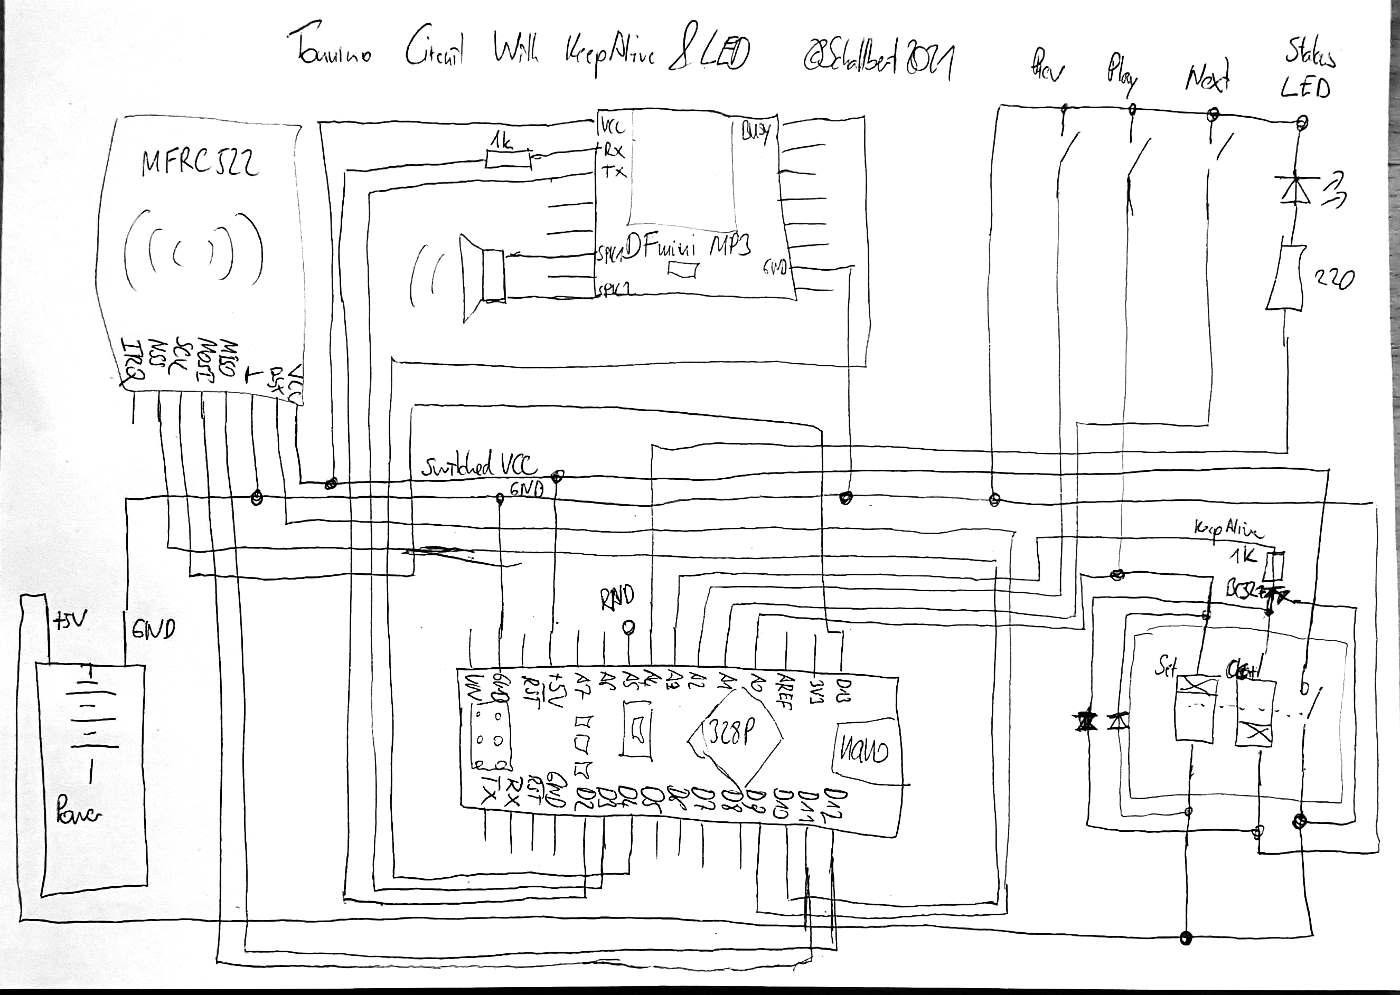 Tonuino Circuit With KeepAlive & LED @Schallbert2021
Prev
Play
Next
Status
LED
MFRC522
1k
VCC
RX
TX
BUSY
SPK1
DFmini MP3
GND
SPK2
220
IRQ
NSS
SCK
MOSI
MISO
RST
VCC
Switched VCC
GND
KeepAlive
1K
+5V
GND
RND
Set
VIN
GND
RST
+5V
A7
A6
A5
A4
A3
A2
A1
A0
AREF
3V3
D13
328P
nano
TX
RX
RST
GND
D2
D3
D4
D5
D6
D7
D8
D9
D10
D11
D12
Power